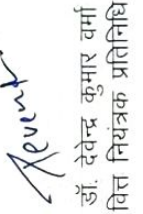 डॉ. देवेन्द्र कुमार वर्मा
वित्त नियंत्रक प्रतिनिधि